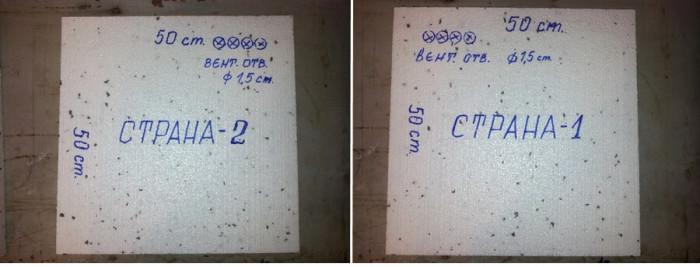 50 cm.
ВЕНТ. ОТВ.
ф 1,5 cm.
50 cm.
СТРАНА-2
50 cm.
ВЕНТ. ОТВ. ф 1,5 cm.
50 cm.
СТРАНА-1